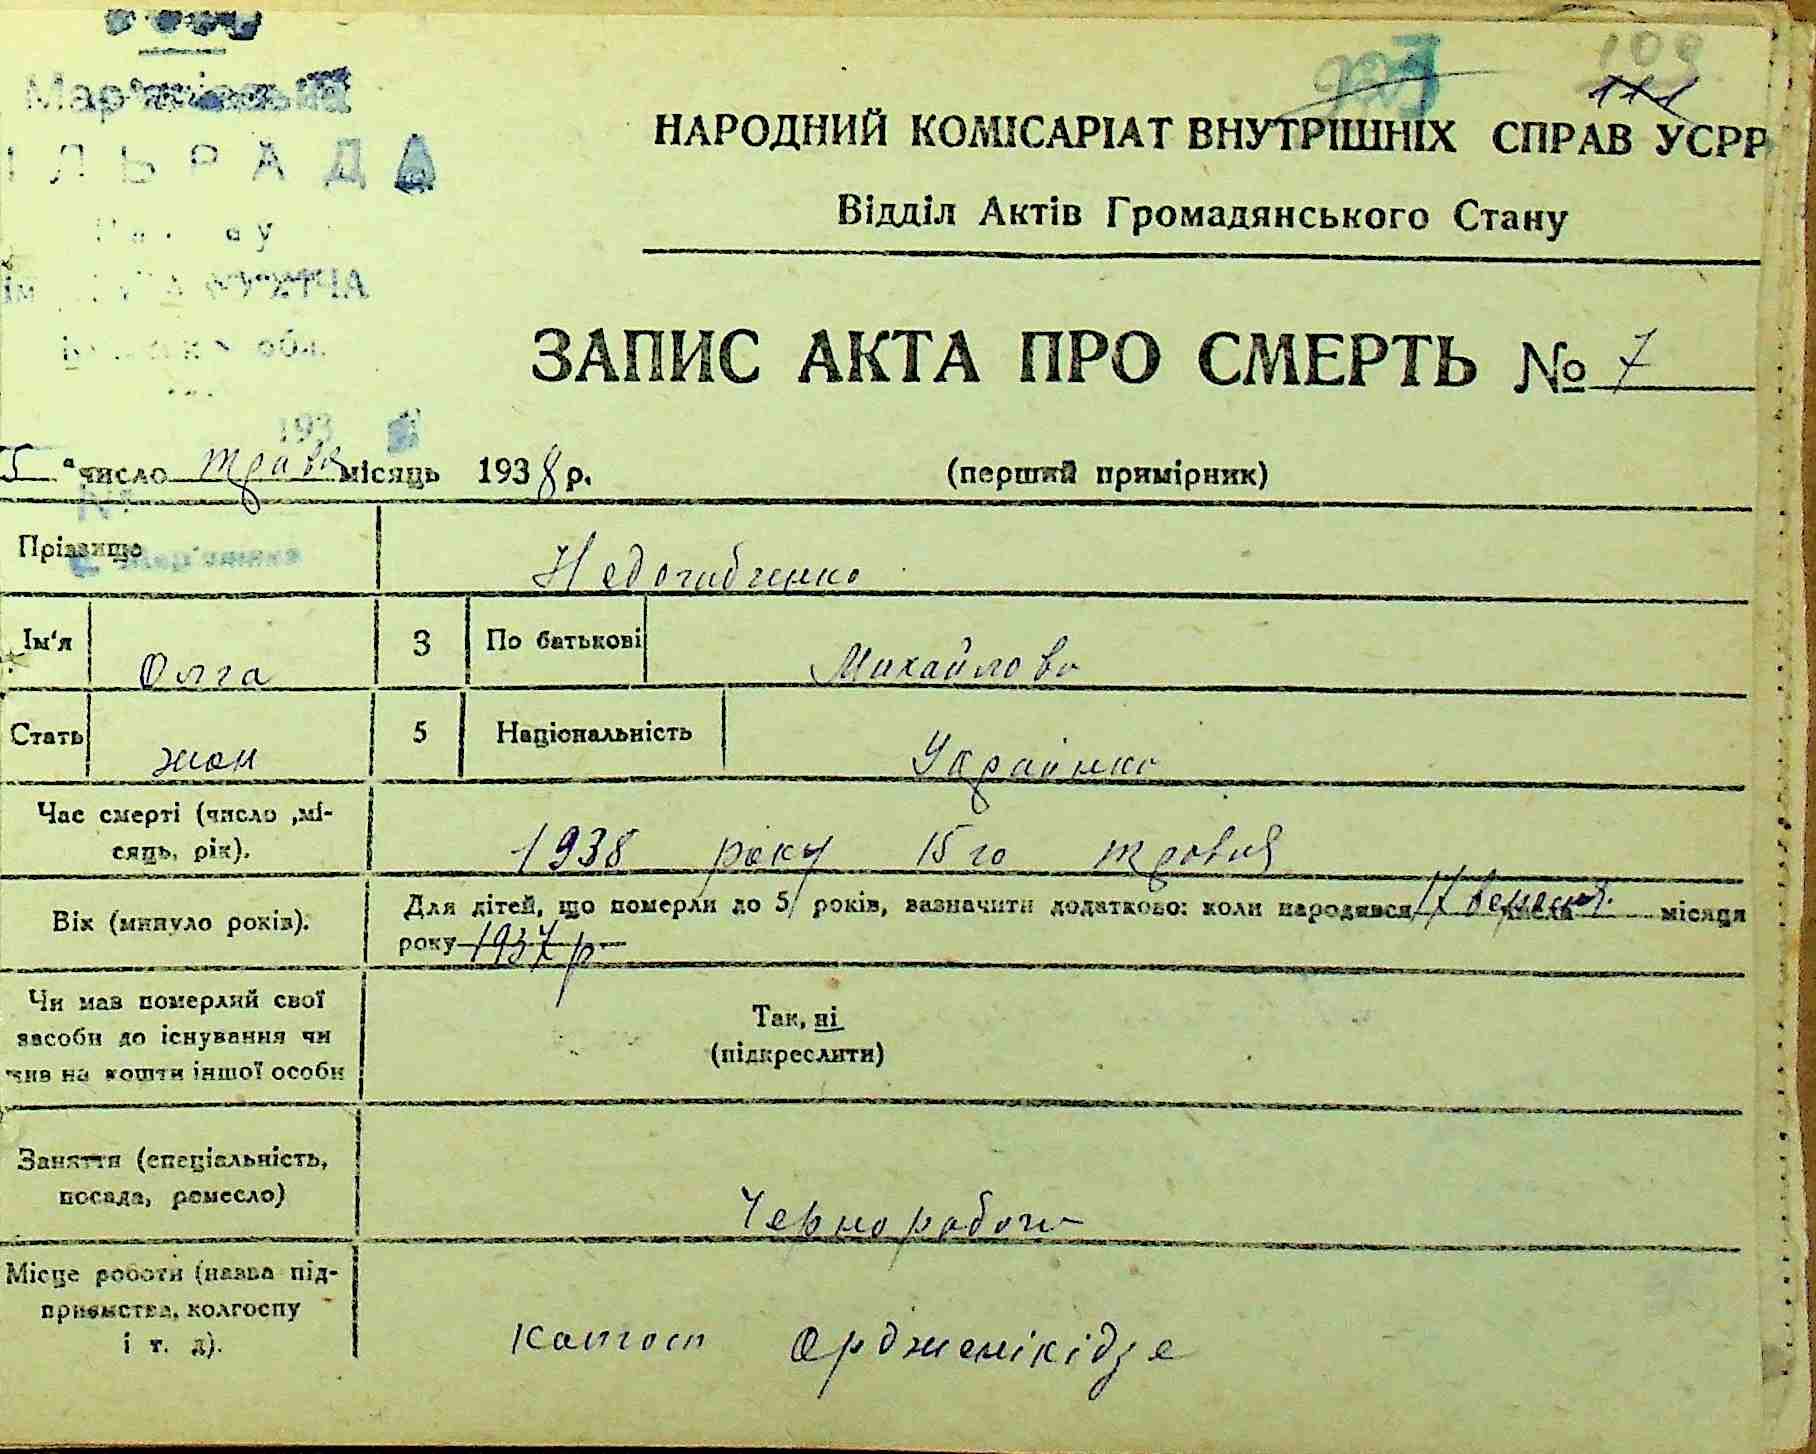 109
111
НАРОДНИЙ КОМІСАРІАТ ВНУТРІШНІХ СПРАВ УСРР
Відділ Актів Громадянського Стану
обл.
ЗАПИС АКТА ПРО СМЕРТЬ № 7
193
число трав місяць 1938 р. (перший примірник)
Прізвище Недогибченко
Ім'я Олга 3 По батькові Михайлова
Стать жен 5 Національність Українка
Час смерті (число ,мі-
сяць, рік). 1938 року 15 го травня
Вік (минуло років). Для дітей, що померли до 5 років, вазначити додатково: коли народився числа місяця
року 1937 р
Чи мав померлий свої
засоби до існування чи
жив на кошти іншої особи
Так, ні
(підкреслити)
Заняття (спеціальність,
посада, ремесло) Чернороботи
Місце роботи (назва під-
приємства, колгоспу
і т. д). Колгосп Ордженікідзе